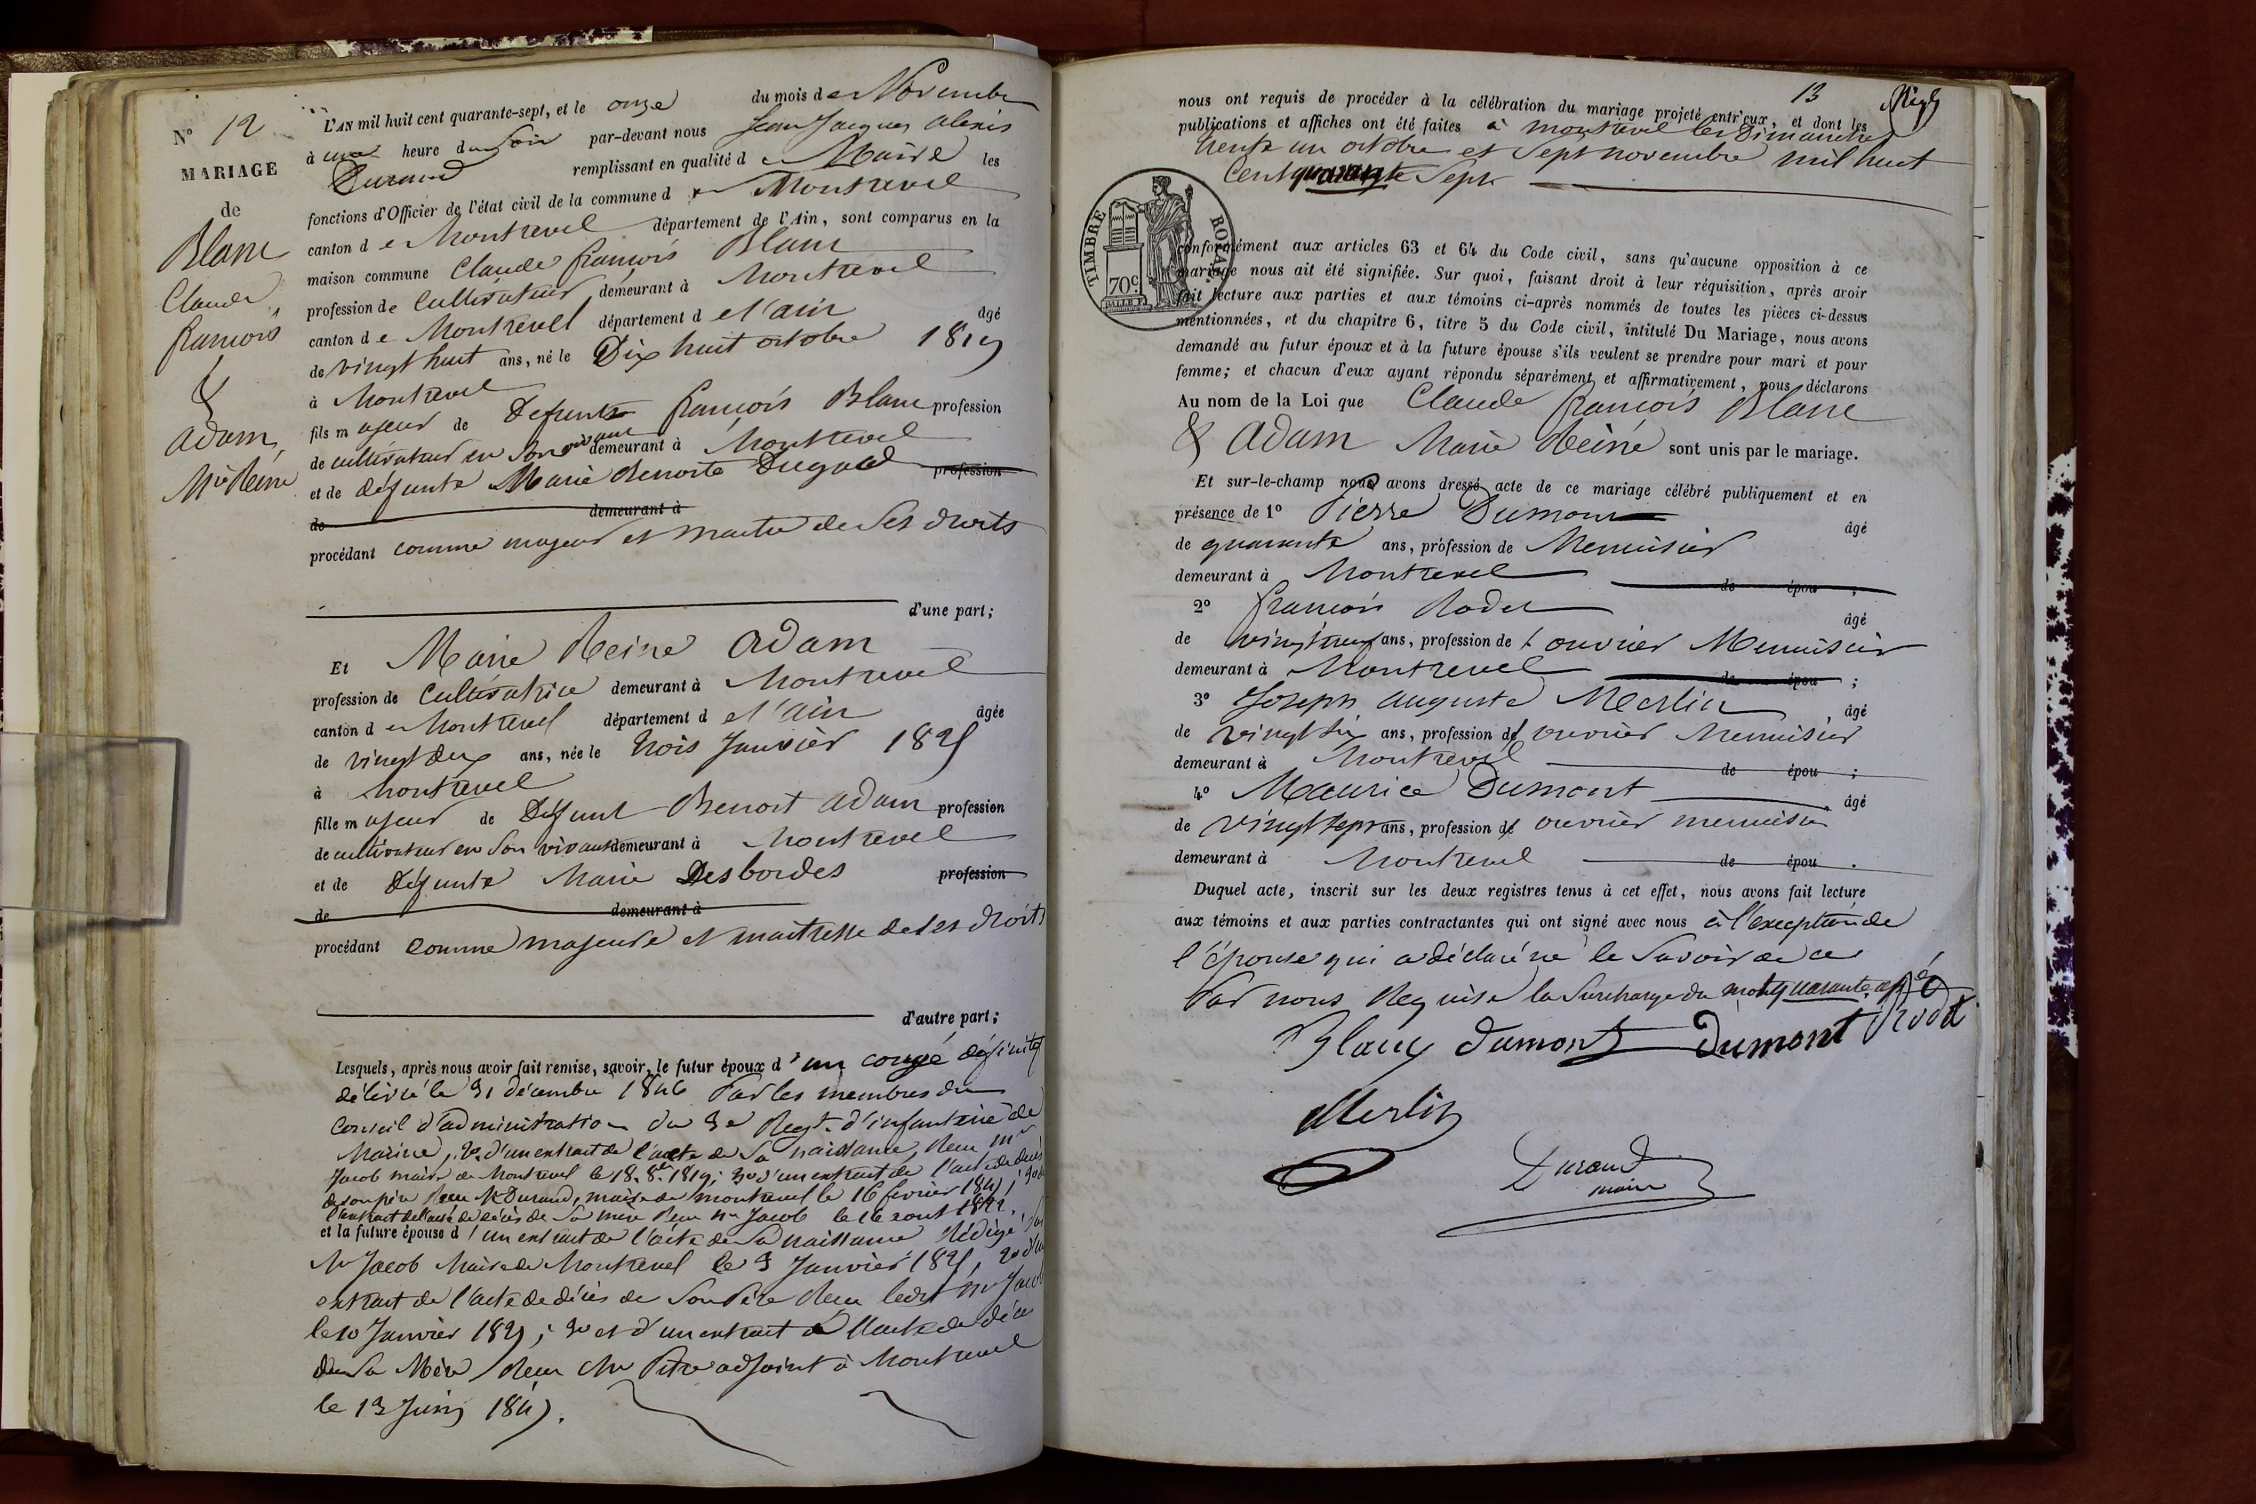 N° 12
MARIAGE
de
Blanc
Claude
françois
&
adam,
Mie Reine
L'AN mil huit cent quarante-sept, et le onze du mois de Novembre
à une heure du Soir par-devant nous Jean Jacques alexis
Durand remplissant en qualité de Maire les
fonctions d'Officier de l'état civil de la commune de Montrevel
canton de Montrevel département de l'Ain, sont comparus en la
maison commune Claude françois Blanc
profession de Cultivateur demeurant à Montrevel
canton de Montrevel département de l'ain âgé
de vingt huit ans, né le Dix huit octobre 1819
à Montrevel
fils majeur de Defunt françois Blanc profession
de cultivateur en Son vivant demeurant à Montrevel
et de défunte Marie Benoite profession
de demeurant à
procédant comme majeur et maitre de Ses droits
d'une part;
Et Marie Reine adam
profession de Cultivatrice demeurant à Montrevel
canton de Montrevel département de l'ain âgée
de vingt deux ans, née le trois Janvier 1825
à Montrevel
fille majeur de Défunt Benoit adam profession
de cultivateur en Son vivant demeurant à Montrevel
et de Défunte Marie Desbordes profession
de demeurant à
procédant comme majeure et maitresse de Ses droits
d'autre part;
Lesquels, après nous avoir fait remise, savoir, le futur époux d'un congé définitif
délivré le 31 décembre 1846 Par les membres du
Conseil d'administration du 3e Regt. d'infanterie de
Marine, 2° d'un extrait de l'acte de Sa naissance, Reçu Mr
Jacob maire de Montrevel le 18. 8bre 1819; 3° d'un extrait de l'acte de décès
de son père Reçu Mr Durand, maire de montrevel le 16 fevrier 1841;
l'extrait de l'acte de décès de Sa mère Reçu Mr Jacob le 16 aout 1822.
et la future épouse d'un extrait de l'acte de Sa naissance Rédigé Par
Mr Jacob Maire de Montrevel le 3 Janvier 1825, 2° d'un
extrait de l'acte de décès de Son Père Reçu ledit Mr Jacob
le 10 Janvier ; 3° et d'un extrait de l'acte de décès
de Sa Mère Reçu Mr Pitre adjoint à Montrevel
le 13 Juin 1847.
13
nous ont requis de procéder à la célébration du mariage projeté entr'eux, et dont les
publications et affiches ont été faites à Montrevel les Dimanches
trente un octobre et Sept novembre mil huit
Cent quarante Sept
TIMBRE ROYAL
70 C.
conformément aux articles 63 et 64 du Code civil, sans qu'aucune opposition à ce
mariage nous ait été signifiée. Sur quoi, faisant droit à leur réquisition, après avoir
fait lecture aux parties et aux témoins ci-après nommés de toutes les pièces ci-dessus
mentionnées, et du chapitre 6, titre 5 du Code civil, intitulé Du Mariage, nous avons
demandé au futur époux et à la future épouse s'ils veulent se prendre pour mari et pour
femme; et chacun d'eux ayant répondu séparément et affirmativement, nous déclarons
Au nom de la Loi que Claude françois Blanc
& adam Marie Reine sont unis par le mariage.
Et sur-le-champ nous avons dressé acte de ce mariage célébré publiquement et en
présence de 1° Pierre Dumont âgé
de quarante ans, profession de Menuisier
demeurant à Montrevel de épou ;
2° françois Rodet âgé
de ans, profession de ouvrier Menuisier
demeurant à Montrevel de épou ;
3° Joseph auguste Merlin âgé
de vingt Six ans, profession d ouvrier Menuisier
demeurant à Montrevel de épou ;
4° Maurice Dumont âgé
de vingt sept ans, profession d ouvrier menuisier
demeurant à Montrevel de épou .
Duquel acte, inscrit sur les deux registres tenus à cet effet, nous avons fait lecture
aux témoins et aux parties contractantes qui ont signé avec nous à l'exception de
l'épouse qui a déclaré ne le Savoir de ce
Par nous Requise la Surcharge du mot quarante app.é
Blanc dumont Dumont Rodet
Merlin
Durand
maire